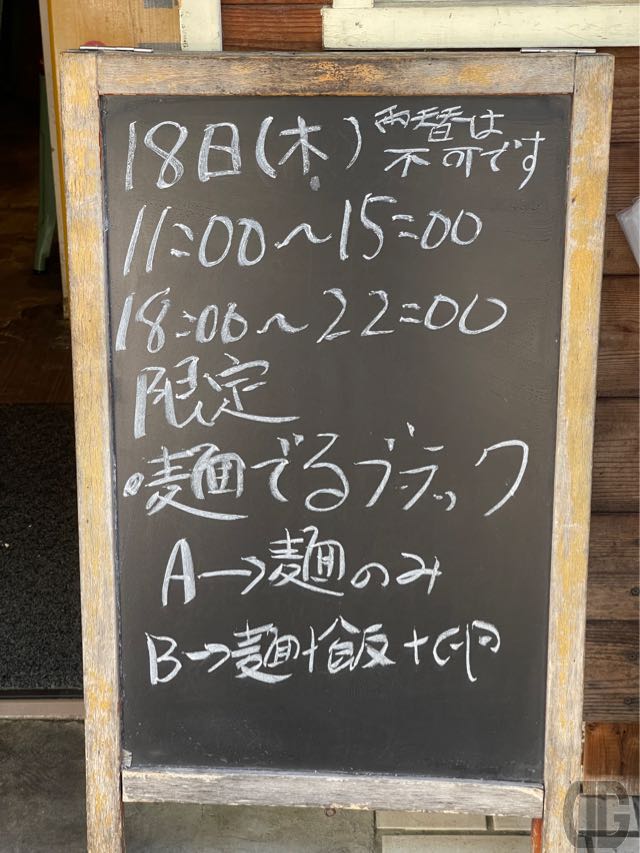 18日(木)
両替は
不可です
11:00～15:00
18:00～22:00
限定
・麺でるブラック
A→麺のみ
B→麺+飯+卵